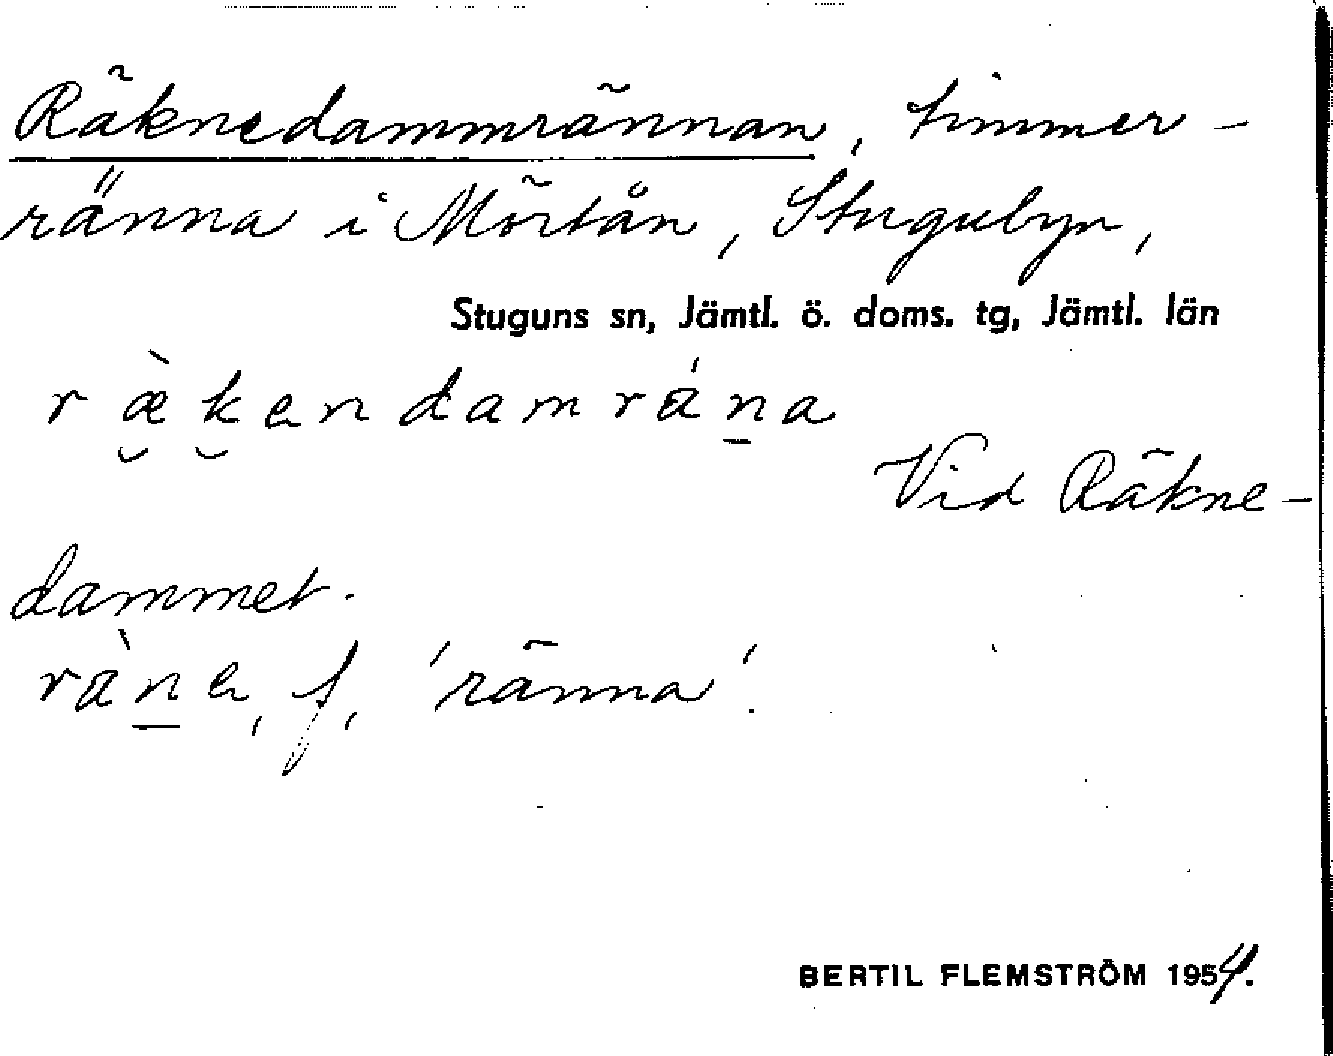 Räknedammrännan, timmer-
ränna i Mörtån, Stugubyn,
Stuguns sn, Jämtl. ö. doms. tg, Jämtl. län
ræ̀kendamrána
Vid Räkne-
dammet.
ràne, f, 'ränna'.
BERTIL FLEMSTRÖM 1954.